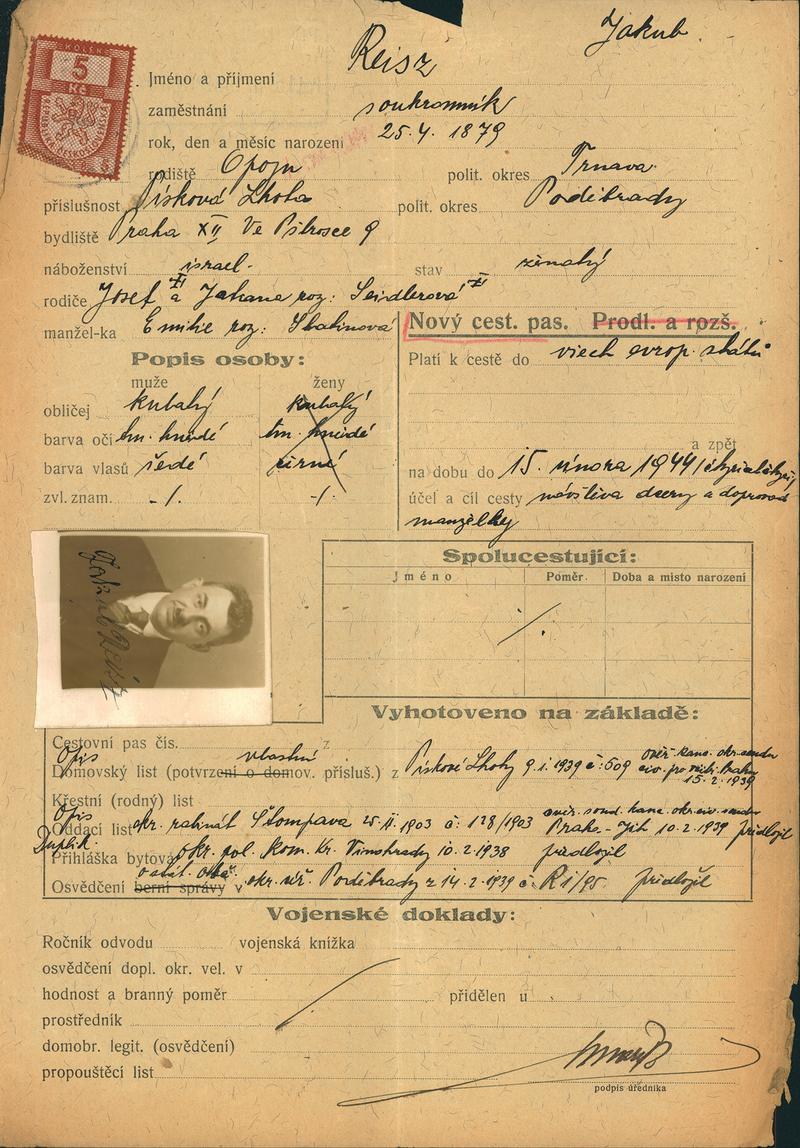 Jakub
Reisz
KOLEK
5
Kč
Jméno a příjmení
zaměstnání soukromník
rok, den a měsíc narození 25.4. 1879
rodiště Opoj polit. okres Trnava
příslušnost Písková Lhota polit. okres Poděbrady
bydliště Praha XII Ve Pštrosce 9
náboženství israel. stav ženatý
rodiče Josef a Johana roz: Seidlerová
manžel-ka Emilie roz:
Nový cest. pas. Prodl. a rozš.
Popis osoby:
Platí k cestě do všech evrop. států
muže ženy
obličej kulatý kulatý
barva očí tm. hnědé tm. hnědé
barva vlasů šedé černé
zvl. znam. -/. -/.
a zpět
na dobu do 15. února 1944
účel a cíl cesty návštěva dcery a doprovod
manželky
Jakub Reisz
Spolucestující:
Jméno Poměr. Doba a misto narození
Vyhotoveno na základě:
Cestovní pas čís. z
Opis vlastní
Domovský list (potvrzení o domov. přísluš.) z Pískové Lhoty 9.1.1939 č: 509
15.2.1939
Křestní (rodný) list
Opis
Oddací list okr. rabinát 1903 č: 128/1903 Praha - Jih 10.2.1939 předložil
Duplik.
Přihláška bytová okr. pol. kom. Kr. Vinohrady 10.2.1938 předložil
Osvědčení berní správy v okr. úř. Poděbrady z 14.2.1939 č. R1/95 předložil
Vojenské doklady:
Ročník odvodu vojenská knížka
osvědčení dopl. okr. vel. v
hodnost a branný poměr přidělen u
prostředník
domobr. legit. (osvědčení)
propouštěcí list
podpis úředníka